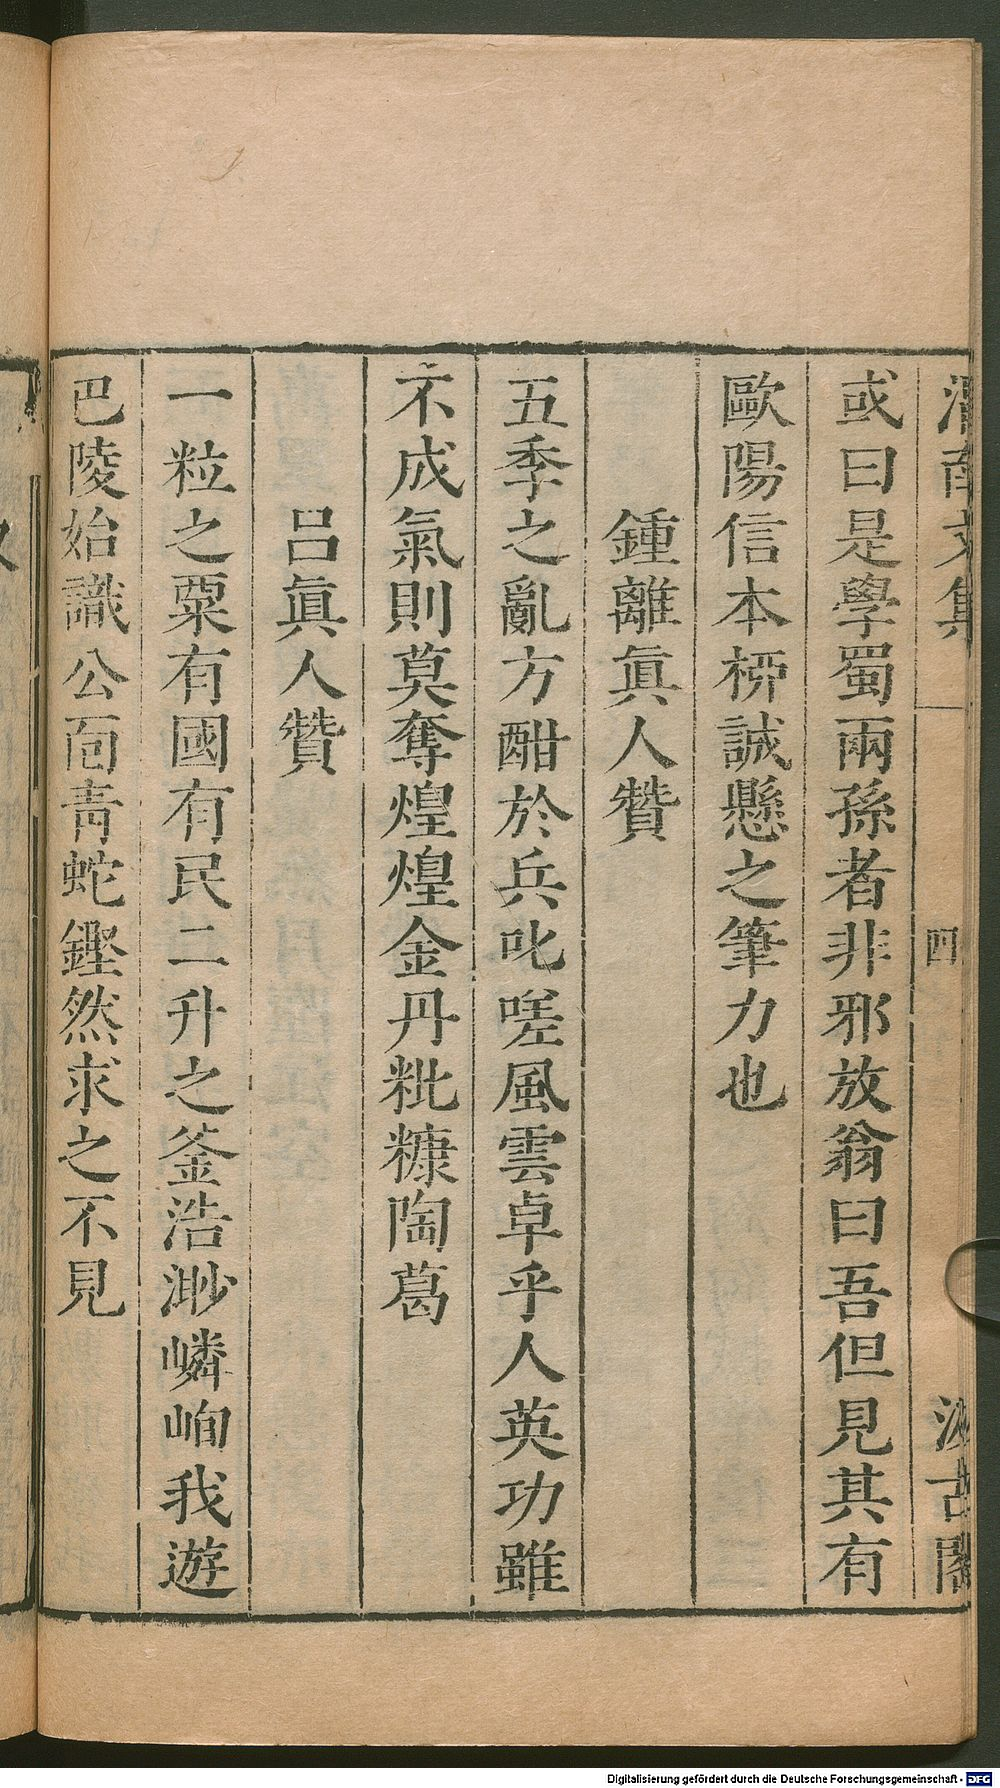 渭南文集 四 汲古閣
或曰是學蜀兩孫者非邪放翁曰吾但見其有
歐陽信本桺誠懸之筆力也
鍾離眞人贊
五季之亂方酣於兵叱嗟風雲卓乎人英功雖
不成氣則莫奪煌煌金丹粃糠陶葛
呂眞人贊
一粒之粟有國有民二升之釜浩渺嶙峋我遊
巴陵始識公面靑蛇鏗然求之不見
Digitalisierung gefördert durch die Deutsche Forschungsgemeinschaft - DFG